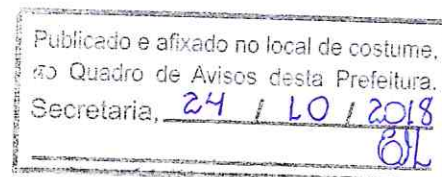 Publicado e afixado no local de costume,
no Quadro de Avisos desta Prefeitura.
Secretaria, 24 / 10 / 2018